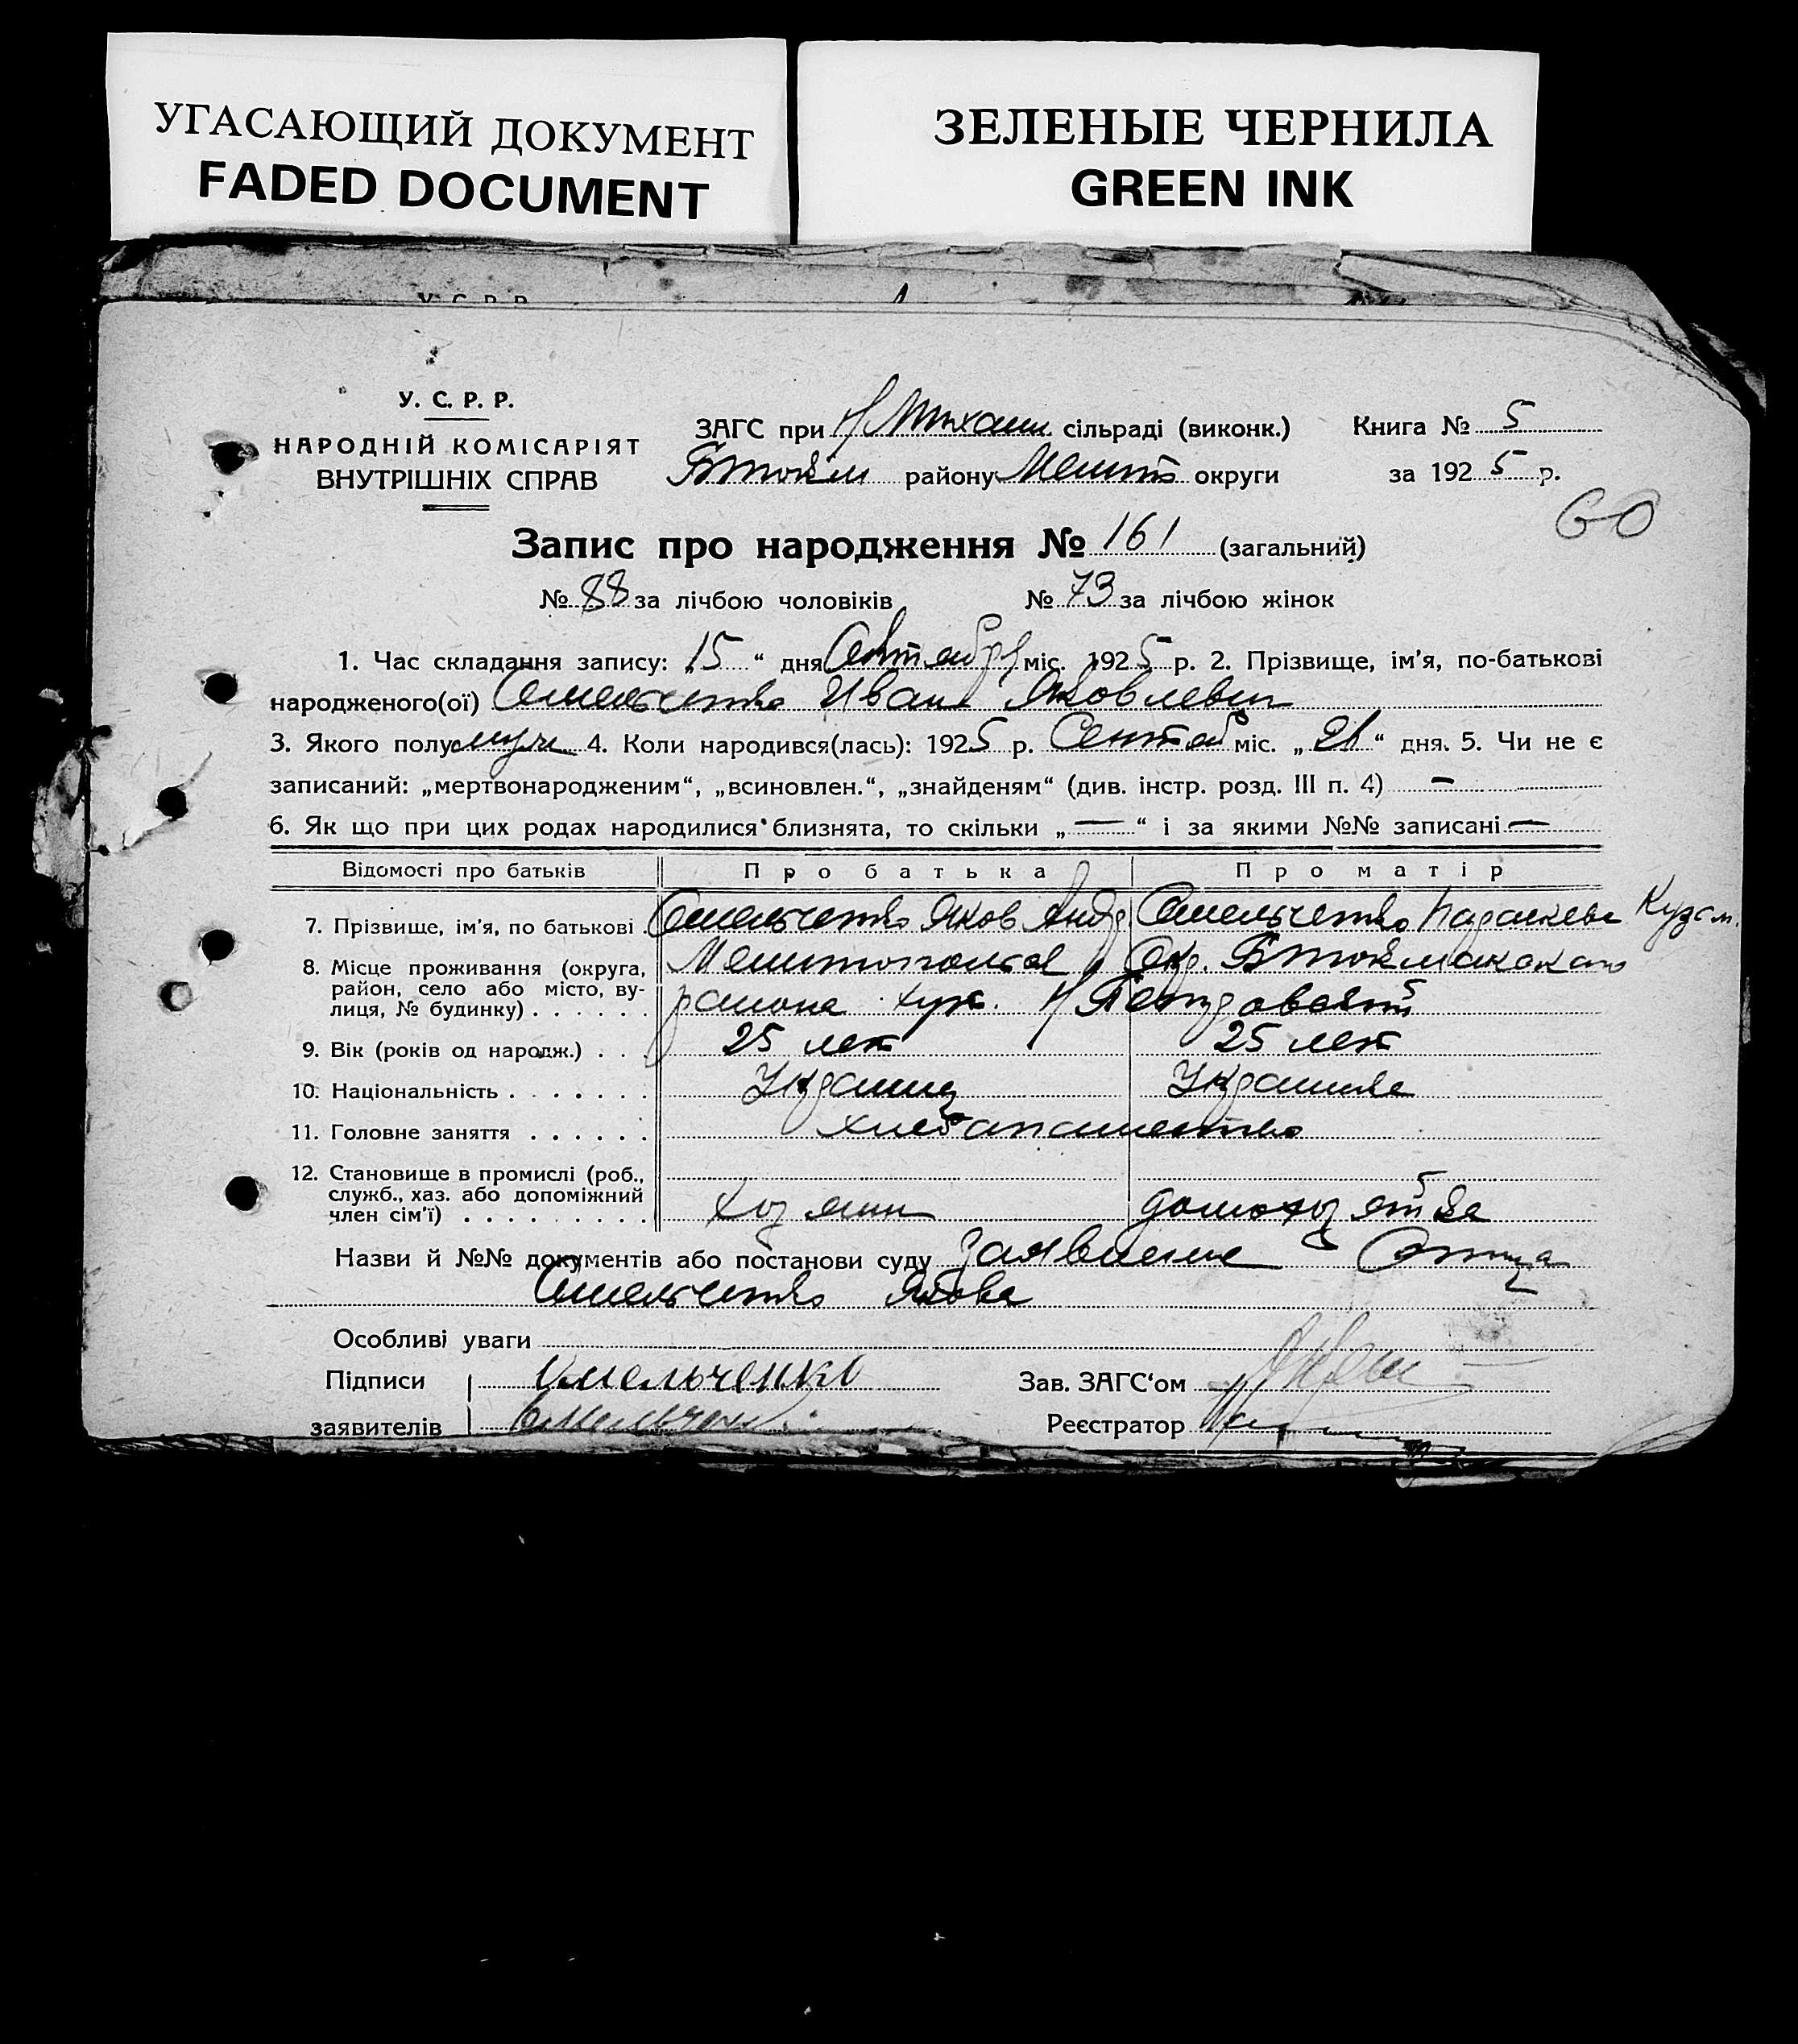 УГАСАЮЩИЙ ДОКУМЕНТ
FADED DOCUMENT
ЗЕЛЕНЫЕ ЧЕРНИЛА
GREEN INK
У. С. Р. Р.
НАРОДНІЙ КОМІСАРІЯТ
ВНУТРІШНІХ СПРАВ
ЗАГС при сільраді (виконк.)
району округи
Книга № 5
за 1925 р.
60
Запис про народження № 161 (загальний)
№ 88 за лічбою чоловіків № 73 за лічбою жінок
1. Час складання запису: „15“ дня Октября міс. 1925 р. 2. Прізвище, ім'я, по-батькові
народженого(ої) Омельченко Иван Яковлевич
3. Якого полу муж 4. Коли народився(лась): 1925 р. Сентяб міс. „21“ дня. 5. Чи не є
записаний: „мертвонародженим“, „всиновлен.“, „знайденям“ (див. інстр. розд. III п. 4) —
6. Як що при цих родах народилися близнята, то скільки „—“ і за якими №№ записані —
Відомості про батьків Про батька Про матір
7. Прізвище, ім'я, по батькові Омельченко Яков Андр. Омельченко Параскева Кузем.
8. Місце проживання (округа, район, село або місто, вулиця, № будинку) Мелитопольской Окр. Бтокмакскаго
района хут.
9. Вік (років од народж.) 25 лет 25 лет
10. Національність Украинец Украинка
11. Головне заняття хлебопашество
12. Становище в промислі (роб., служб., хаз. або допоміжний член сім'ї) хозяин домохозяйка
Назви й №№ документів або постанови суду Заявление Отца
Омельченко Якова
Особливі уваги
Підписи Омельченко Зав. ЗАГС'ом
заявителів Реєстратор